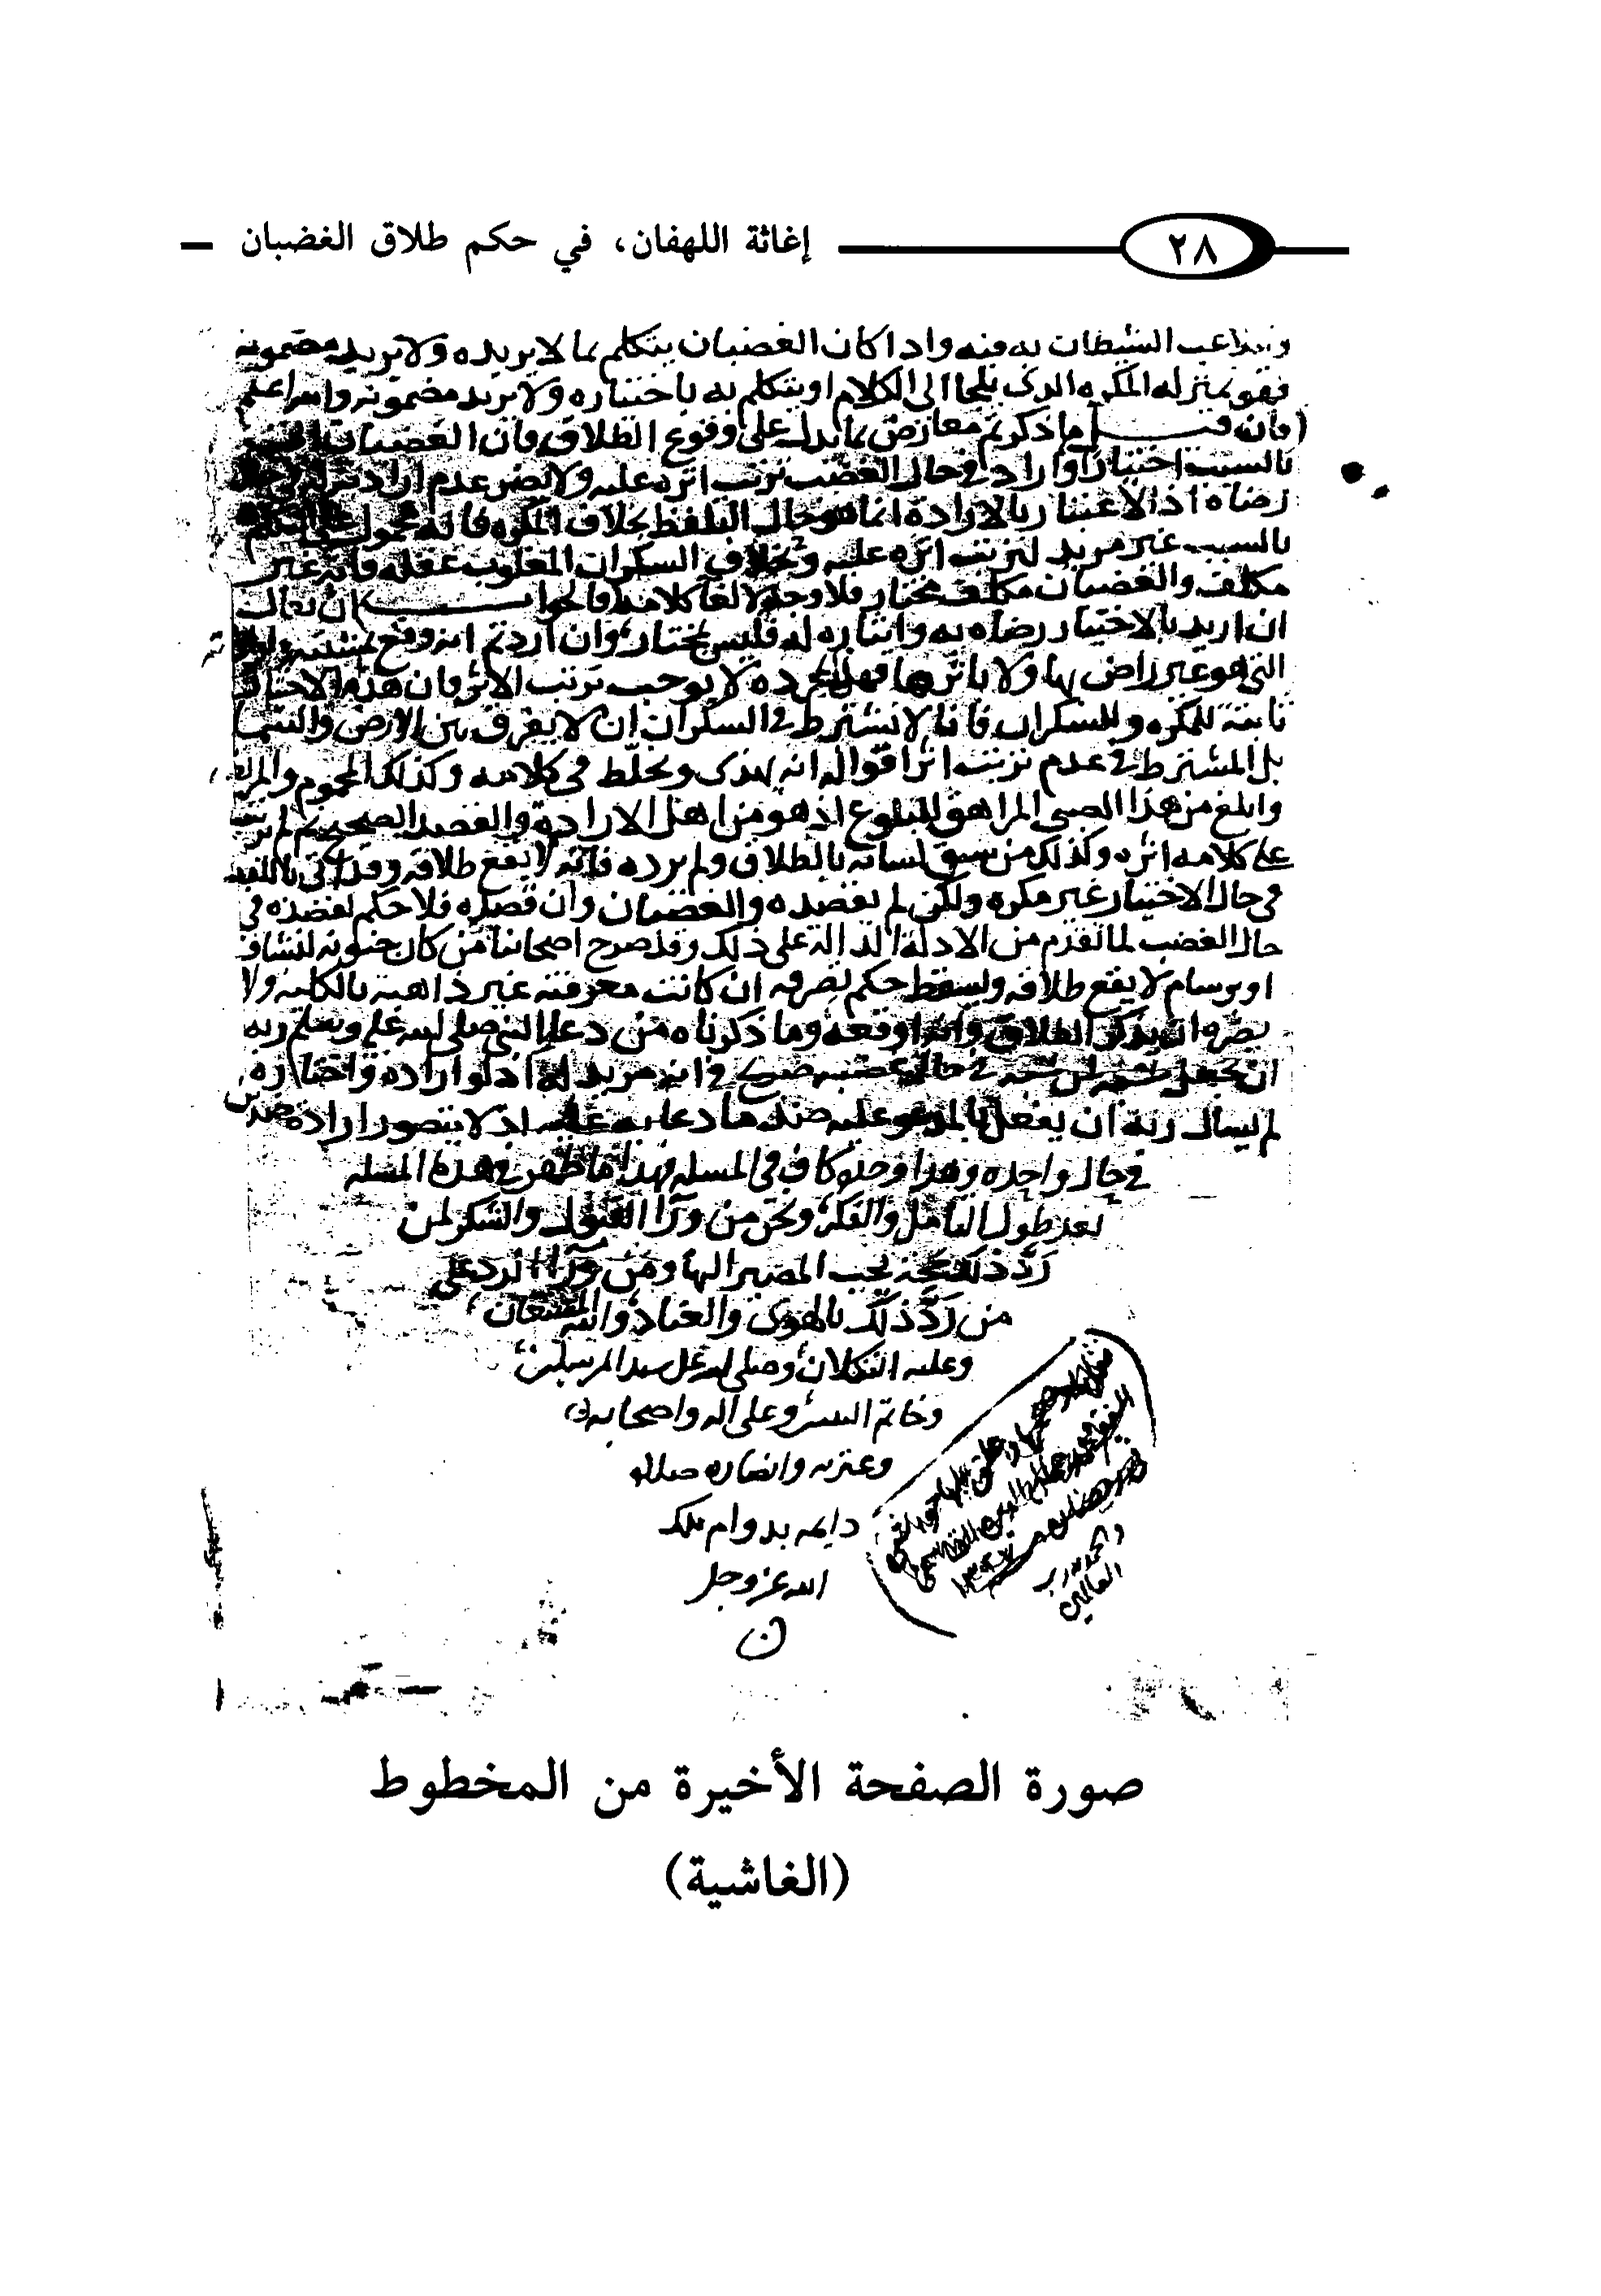 ٢٨
إغاثة اللهفان، في حكم طلاق الغضبان
الشيطان به فيه واذا كان الغضبان يتكلم بما لا يريده ولا يريد مضمونه
فهو بمنزله المكره الذي يلجا الى الكلام او يتكلم به باختياره ولا يريد مضمونه والله اعلم
ما ذكرتم معارض بما يدل على وقوع الطلاق فان الغضبان
بالسبب اختيارا واراد في حال الغضب ترتب اثره عليه ولا يضر عدم ارادته
رضاه اذ الاعتبار بالارادة انما هو حال التلفظ بخلاف المكره فانه محمول على
بالسبب غير مريد لترتب اثره عليه وبخلاف السكران المغلوب عقله فانه غير
مكلف والغضبان مكلف مختار فلا وجه لالغا كلامه فالجواب ان يقال
ان اريد بالاختيار رضاه به وايثاره له فليس بمختار وان اردتم انه وقع بمشيته
التي هو غير راض بها ولا باثرها فهذا بمجرده لا يوجب ترتب الاثر فان هذا الاختيار
ثابت للمكره والسكران فانا لا نشترط في السكران ان لا يفرق بين الارض والسما
بل المشترط في عدم ترتب اثر اقواله انه يهذي ويخلط في كلامه وكذلك المحموم
وابلغ من هذا الصبي المراهق للبلوغ اذ هو من اهل الارادة والقصد الصحيح ثم لم يرتب
على كلامه اثره وكذلك من سبق لسانه بالطلاق ولم يرده فانه لا يقع طلاقه وقد اتى باللفظ
في حال الاختيار غير مكره ولكن لم يقصده والغضبان وان قصده فلا حكم لقصده في
حال الغضب لما تقدم من الادلة الدالة على ذلك وقد صرح اصحابنا من كان جنونه لنشاف
او برسام لا يقع طلاقه ويسقط حكم تصرفه ان كانت معرفته غير ذاهبة بالكلية ولا
يضره ان يذكر الطلاق وانه اوقعه وما ذكرناه من دعا النبي صلى الله عليه وسلم ربه
ان يجعل في حال فانه مريد له اذ لو اراده واختاره
لم يسال ربه ان يفعل بالمدعو عليه ضد ما دعا به عليه اذ لا يتصور ارادة ضدين
في حال واحده وهذا وحده كاف في المسله فهذا ما ظهر في هذه المسله
بعد طول التامل والفكر ونحن من ورا القبول والشكر لمن
رد ذلك بحجة يجب المصير اليها ومن ورا الرد على
من رد ذلك بالهوى والعناد والله المستعان
وعليه التكلان وصلى الله على سيد المرسلين
وخاتم وعلى اله واصحابه
وعترته وانصاره صلاة
دايمه بدوام ملك
الله عز وجل
والحمد لله رب
العالمين
صورة الصفحة الأخيرة من المخطوط
(الغاشية)